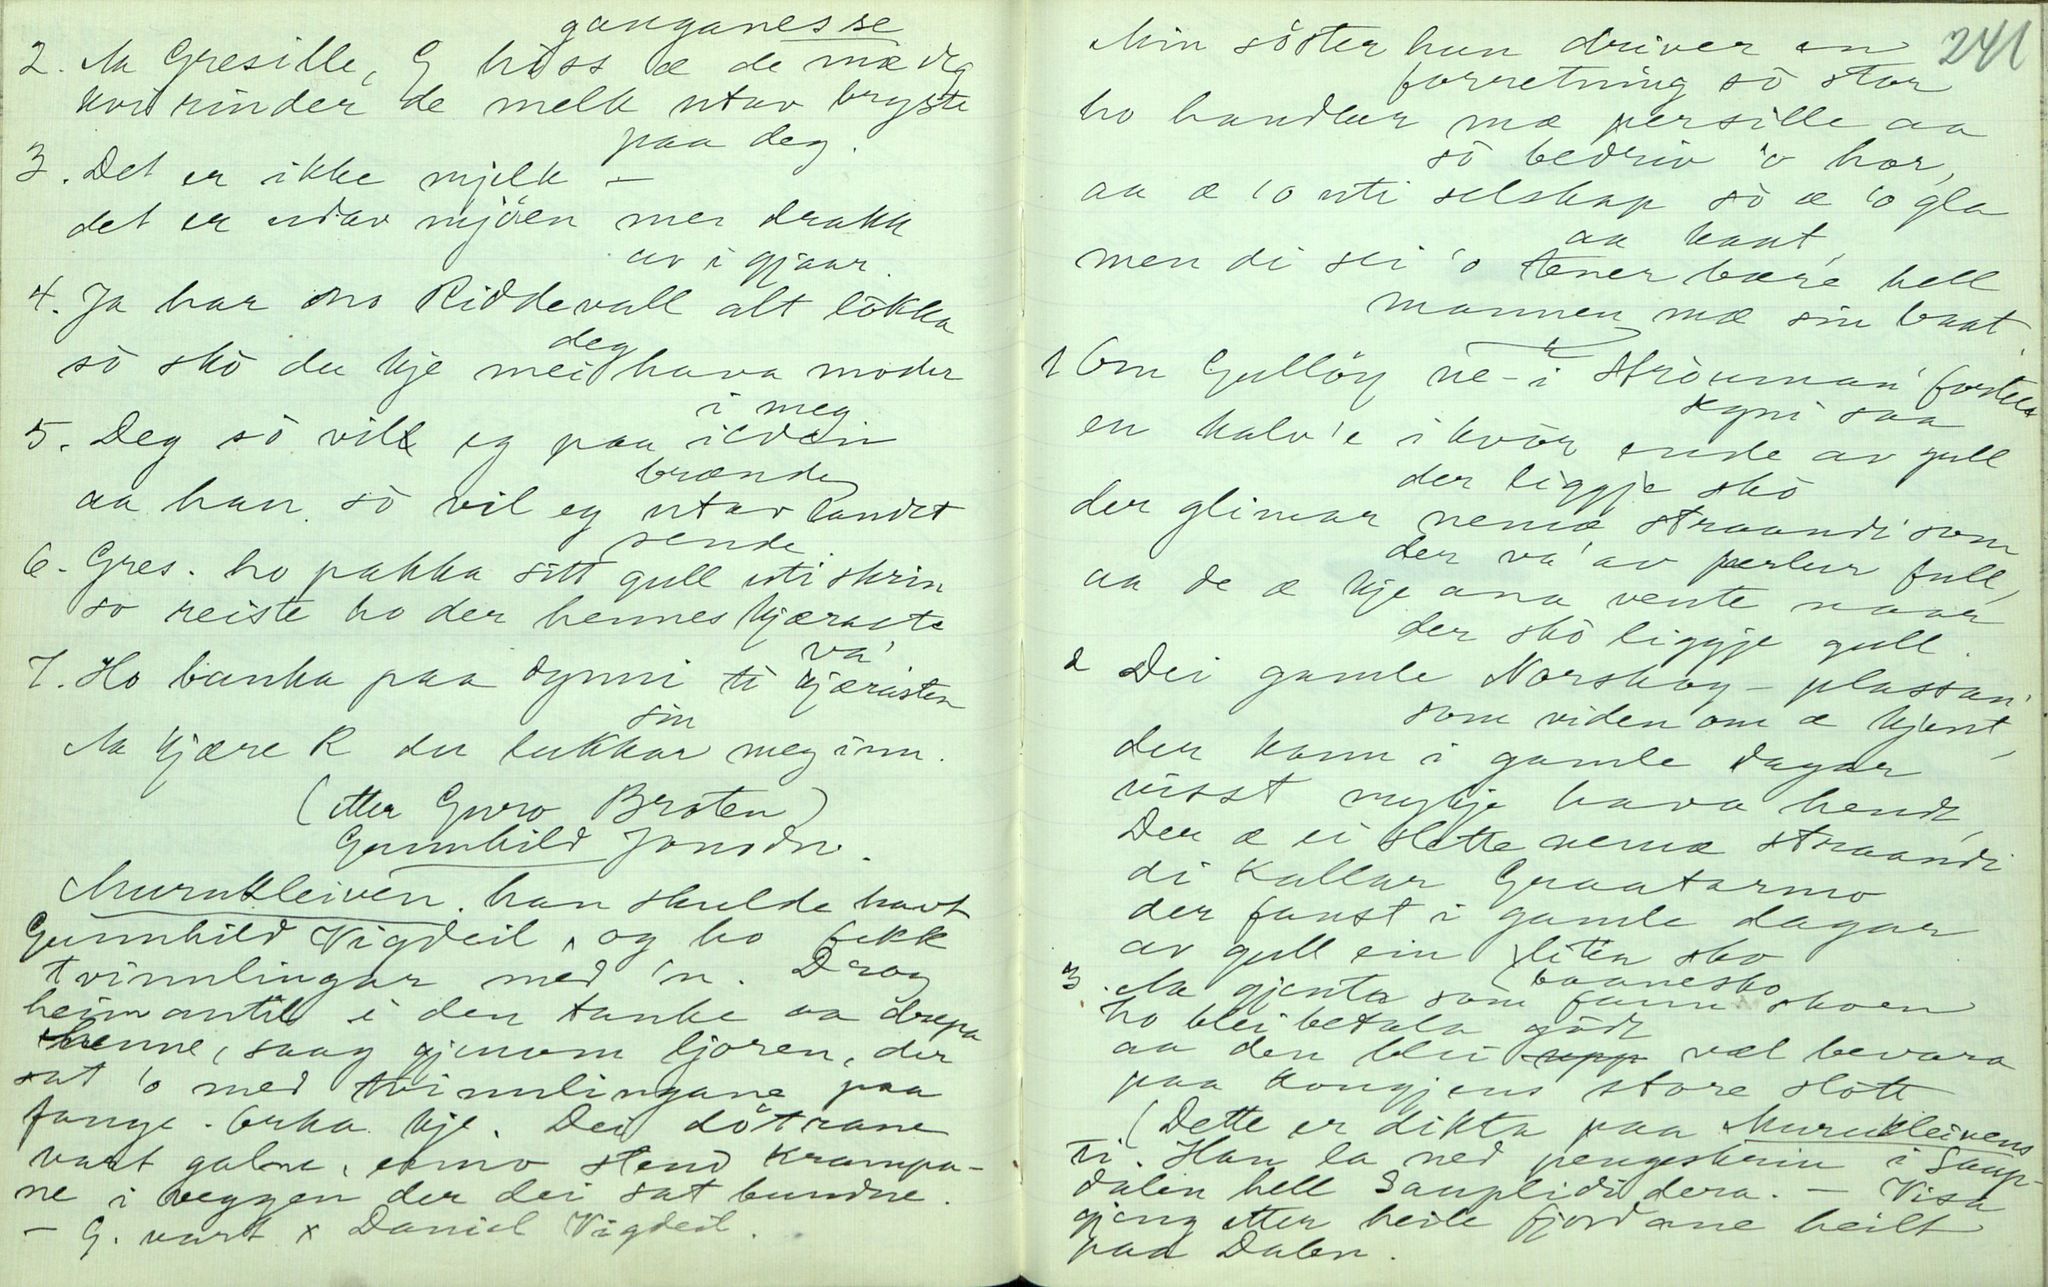 ganganesse
2. Aa Gresille, G hoss æ de mæ deg
hvi rinder de melk utav bryste
paa deg.
3. Det er ikke mjelk –
det er utav mjöen mei drakk
av i gjaar.
4. Ja har no Riddevall alt lökka
deg
sö skö du kje mei hava moder
i meg
5. Deg sö vil eg paa ilden
brænde
aa han sö vil eg utav landet
sende
6. Gres. ho pakka sitt gull uti skrin
so reiste ho der hennes kjæraste
va'
7. Ho banka paa dynni ti kjæristen
sin
Aa kjære R du lukkar meg inn.
(etter Guro Broten)
Gunnhild Jonsdr.
Murukleiven. han skulde havt
Gunnhild Vigdeil, og ho fekk
tvinnlingar med 'n. Drog
heimantil i den tanke aa drepa
henne, saag gjenom ljoren, der
sat 'o med tvinnlingane paa
fange. Orka kje. Dei döttrane
vart galne, enno stend krampa-
ne i veggen der dei sat bundne.
– G. vart x Daniel Vigdeil.
241
Min söster hun driver en
forretning sö stor
ho handlar mæ persille aa
sö bedriv 'o hor,
aa æ 'o uti selskap sö æ 'o gla
aa kaat,
men di sei 'o tener bære hell
mannen mæ sin baat.
1 Om Gulløy ne i Ströuman' fortel
sgni saa
en halv'e i kvör ende av gull
der liggje skö
der glimar nemæ straandi som
der va' av perlur full,
aa de æ kje ana vente naar
der skö liggje gull.
2 Dei gamle Norskog-plassan'
som viden om æ kjent,
der kann i gamle dagar
visst mykje hava hendt,
Der æ ei slette nemæ straandi
di kallar Graatarmo
der fanst i gamle dagar
av gull ein liten sko
(baanesko
3. Aa gjenta som fann skoen
ho blei betala gödt
aa den blei væl bevara
paa kongjens store slött
(Dette er dikta paa Murukleivens
ti. Han la ned pengeskrin i Saup-
dalen hell Sauplidi dera. – Visa
gjeng etter heile fjordane heilt
paa Dalen.